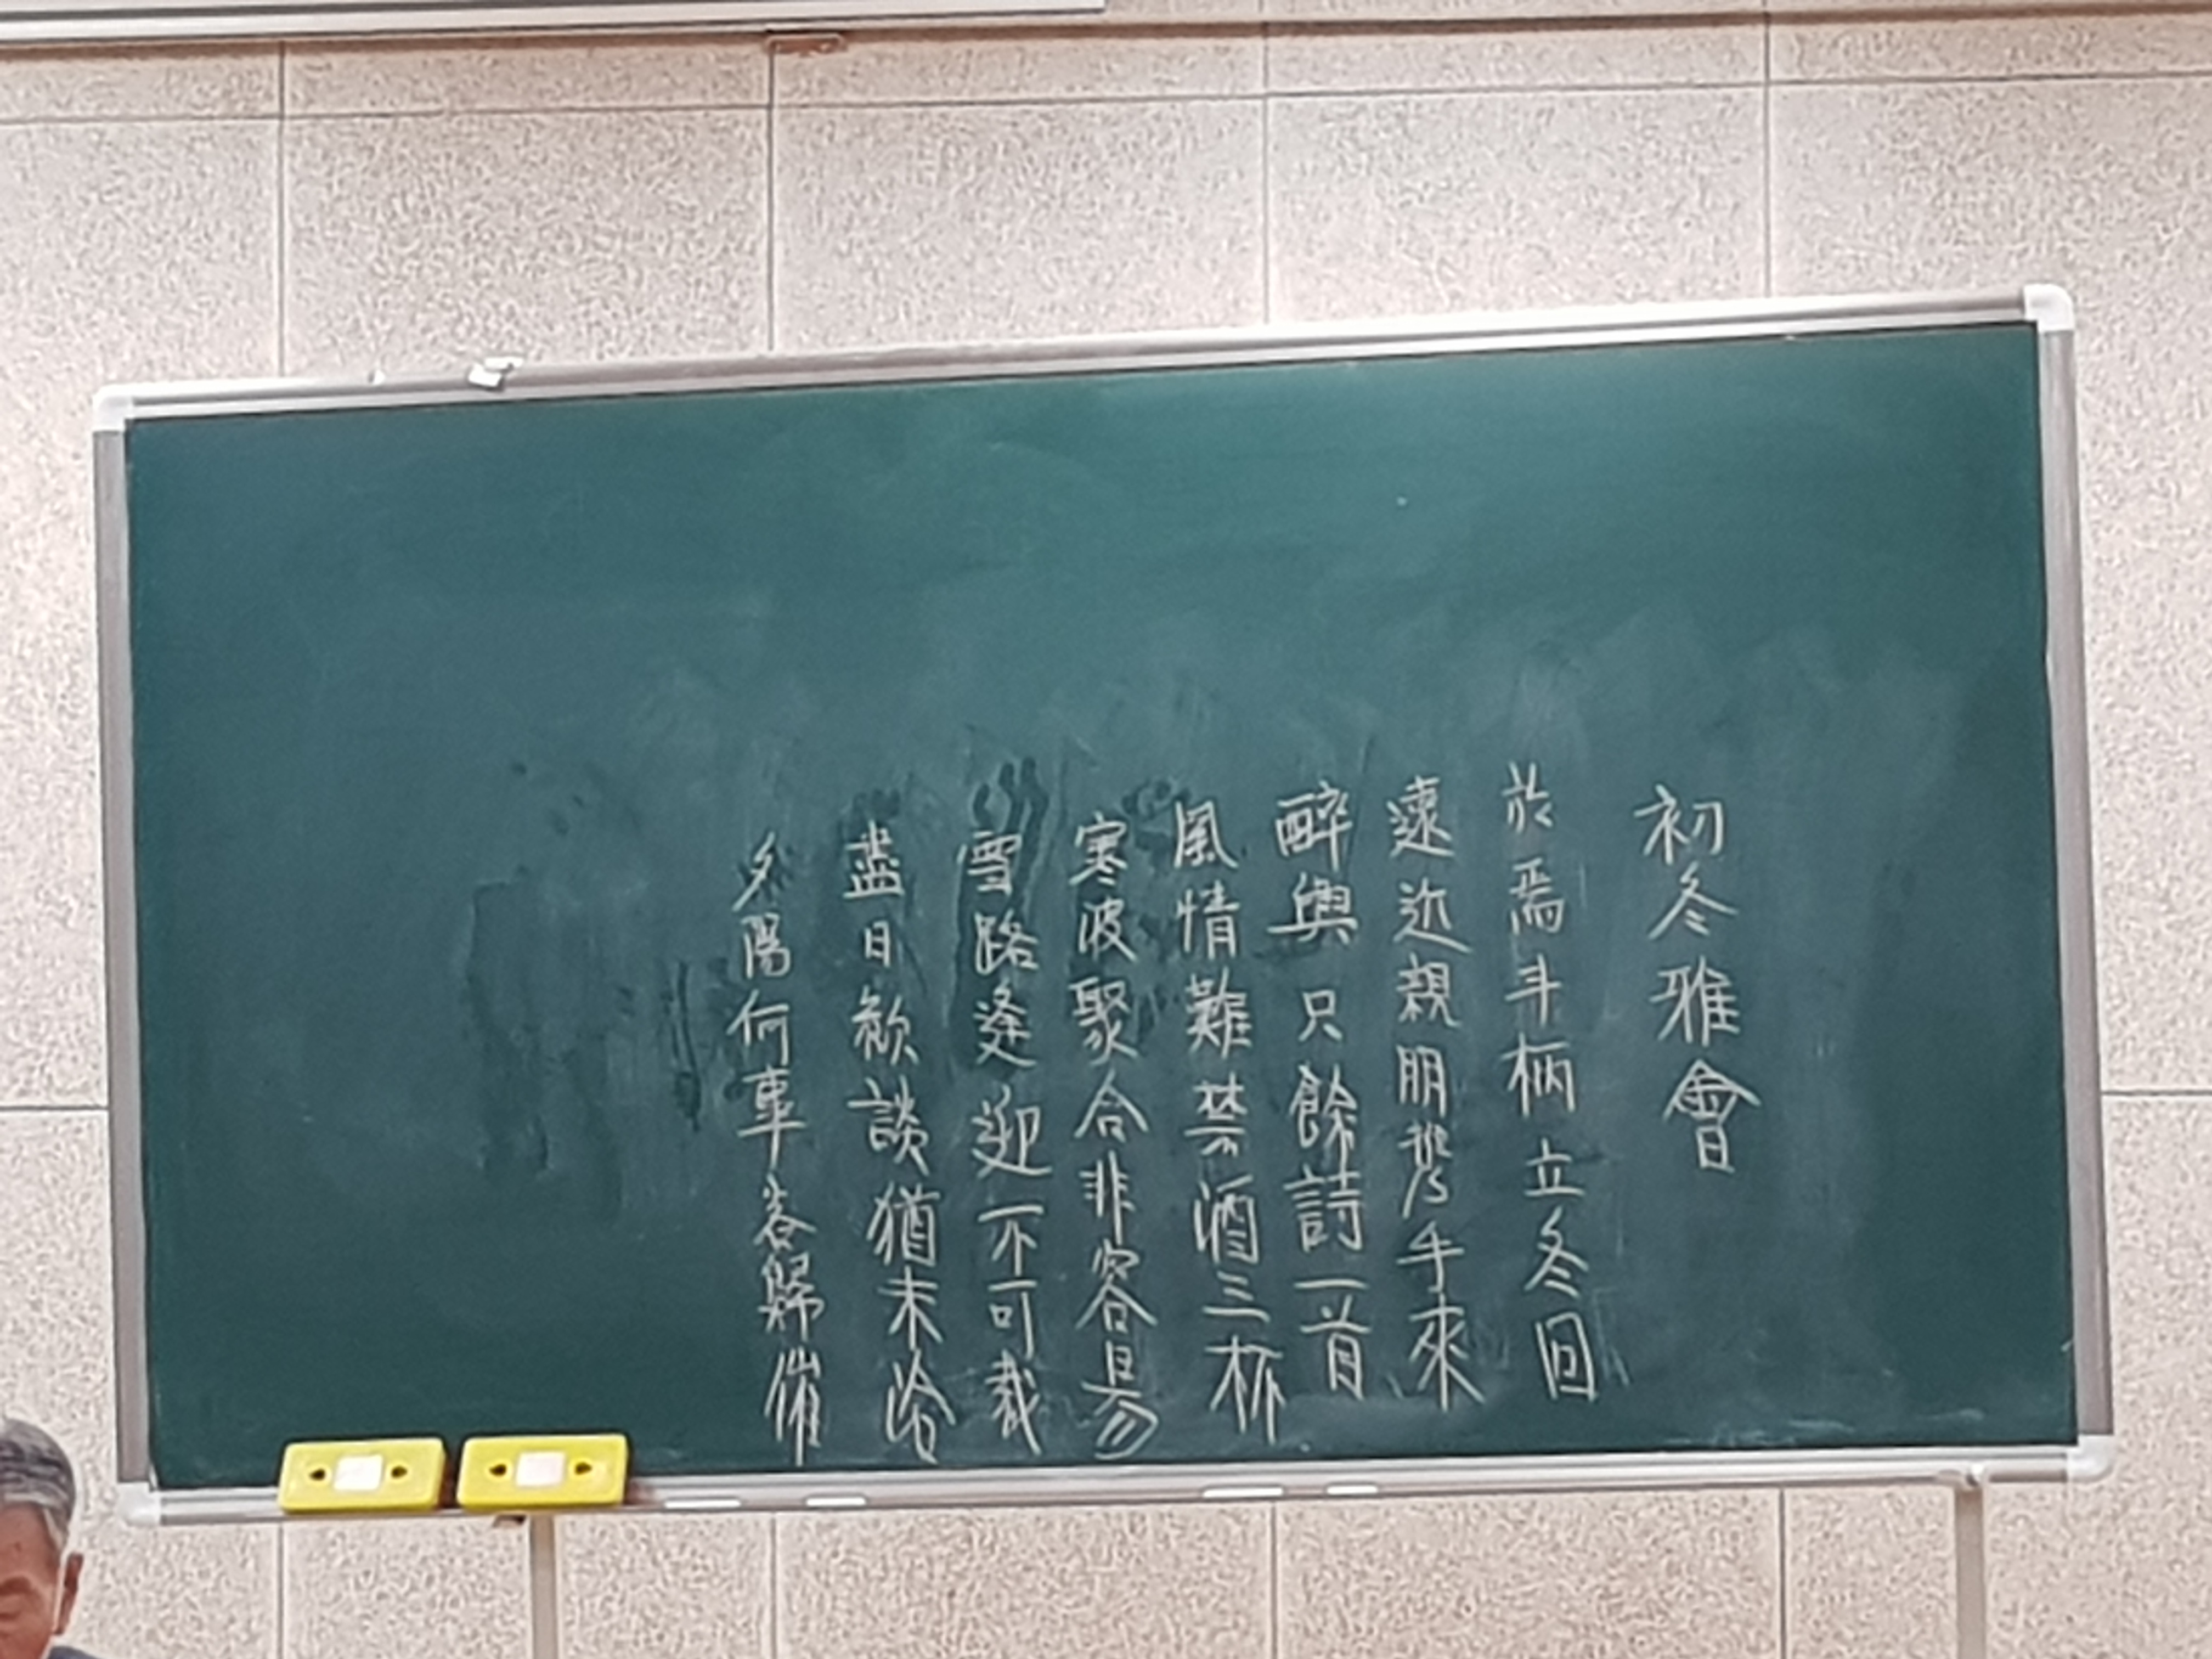 初冬雅會
於焉斗柄立冬回
遠近親朋携手來
醉興只餘詩一首
風情難禁酒三杯
寒波聚合非容易
雪路逢迎不可裁
盡日歡談猶未洽
夕陽何事客歸催